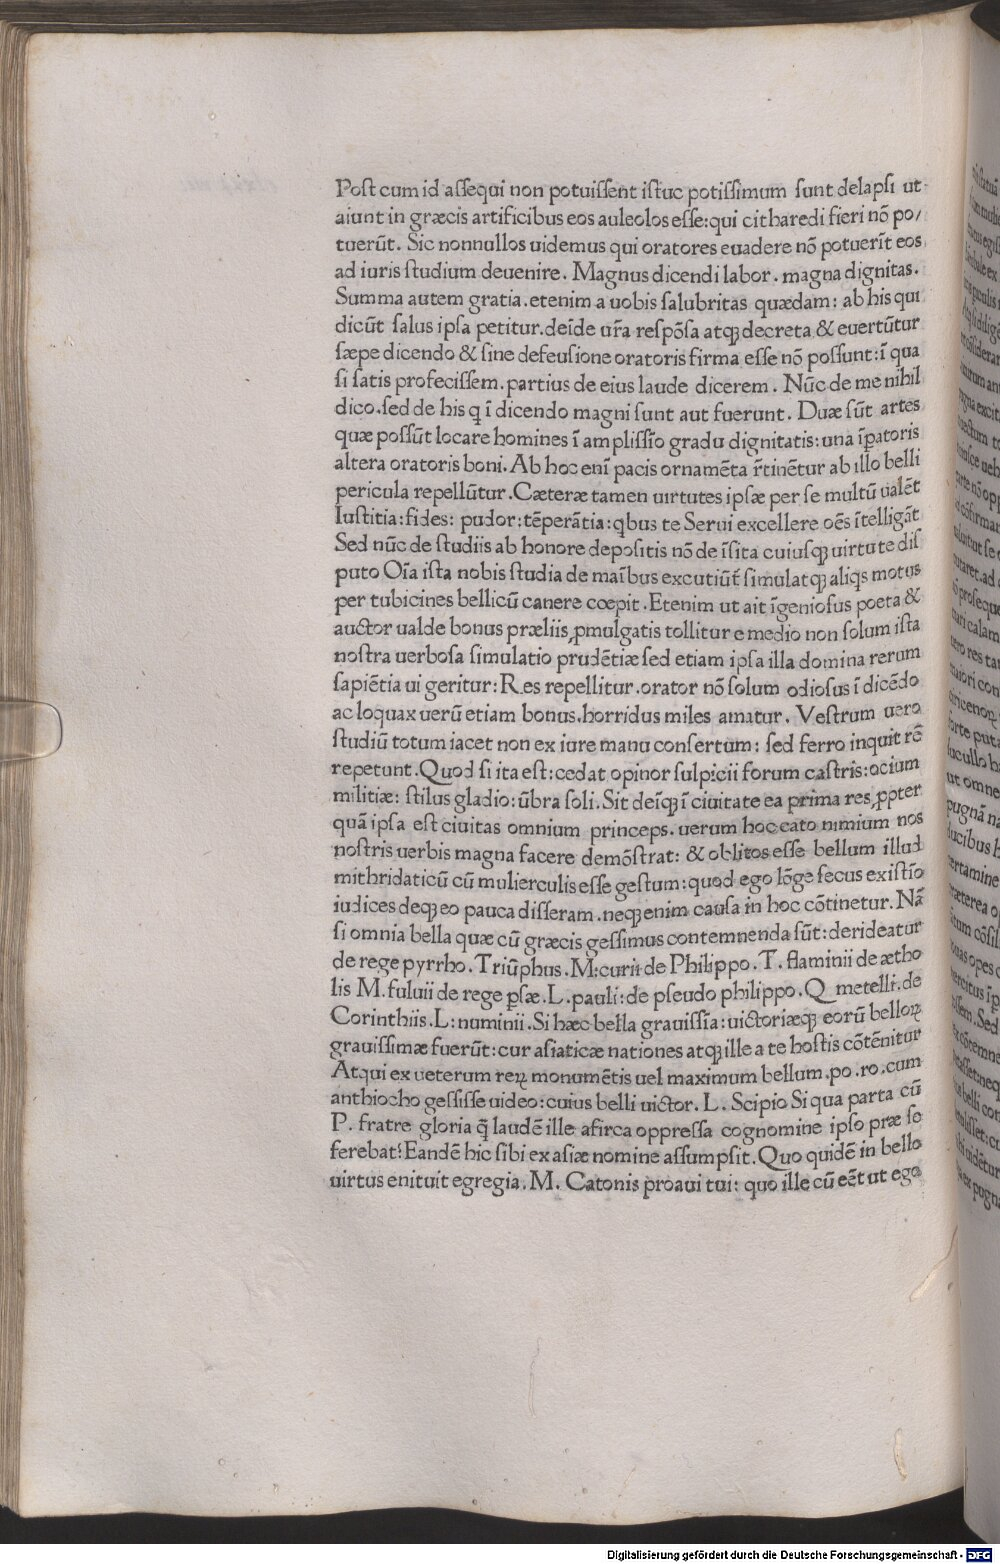 Poſt cum id aſſequi non potuiſſent iſtuc potiſſimum ſunt delapſi ut
aiunt in græcis artificibus eos auleolos eſſe:qui citharedi fieri nō po/
tuerūt. Sic nonnullos uidemus qui oratores euadere nō potuerīt eos
ad iuris ſtudium deuenire. Magnus dicendi labor. magna dignitas.
Summa autem gratia.etenim a uobis ſalubritas quædam: ab his qui
dicūt ſalus ipſa petitur.deīde ur̄a reſpōſa atqꝫ decreta & euertūtur
ſæpe dicendo & ſine defeuſione oratoris firma eſſe nō poſſunt:ī qua
ſi ſatis profeciſſem.partius de eius laude dicerem. Nūc de me nihil
dico.ſed de his q ī dicendo magni ſunt aut fuerunt. Duæ ſūt artes
quæ poſſūt locare homines ī ampliſſīo gradu dignitatis:una īꝑatoris
altera oratoris boni. Ab hoc enī pacis ornamēta r̄tinētur ab illo belli
pericula repellūtur. Cæteræ tamen uirtutes ipſæ per ſe multū ualēt
Iuſtitia:fides: pudor:tēperātia:qbus te Serui excellere oēs ītelligāt
Sed nūc de ſtudiis ab honore depoſitis nō de īſita cuiuſqꝫ uirtute diſ
puto Oīa iſta nobis ſtudia de maībus excutiūt̄ ſimulatqꝫ aliqs motus
per tubicines bellicū canere cœpit. Etenim ut ait īgenioſus poeta &
auctor ualde bonus præliis ꝓmulgatis tollitur e medio non ſolum iſta
noſtra uerboſa ſimulatio prudētiæ ſed etiam ipſa illa domina rerum
ſapiētia ui geritur: Res repellitur.orator nō ſolum odioſus ī dicēdo
ac loquax uerū etiam bonus.horridus miles amatur. Veſtrum uero
ſtudiū totum iacet non ex iure manu conſertum: ſed ferro inquit rē
repetunt. Quod ſi ita eſt:cedat opinor ſulpicii forum caſtris:ocium
militiæ: ſtilus gladio:ūbra ſoli. Sit deīqꝫ ī ciuitate ea prima res ꝓpter
quā ipſa eſt ciuitas omnium princeps. uerum hoc cato nimium nos
noſtris uerbis magna facere demōſtrat: & oblitos eſſe bellum illud
mithridaticū cū mulierculis eſſe geſtum:quod ego lōge ſecus exiſtīo
iudices deqꝫ eo pauca diſſeram.neqꝫ enim cauſa in hoc cōtinetur. Nā
ſi omnia bella quæ cū græcis geſſimus contemnenda ſūt:derideatur
de rege pyrrho. Triūphus. M:curii de Philippo. T. flaminii de ætho
lis M.fuluii de rege ꝑſæ. L. pauli: de pſeudo philippo. Q metelli. de
Corinthiis. L: numinii. Si hæc bella grauiſſīa:uictoriæqꝫ eorū belloꝝ
grauiſſimæ fuerūt:cur aſiaticæ nationes atqꝫ ille a te hoſtis cōtēnitur
Atqui ex ueterum reꝝ monumētis uel maximum bellum.po.ro.cum
anthiocho geſſiſſe uideo:cuius belli uictor. L. Scipio Si qua parta cū
P. fratre gloria q̄ laudē ille afirca oppreſſa cognomine ipſo præ ſe
ferebat: Eandē hic ſibi ex aſiæ nomine aſſumpſit. Quo quidē in bello
uirtus enituit egregia. M. Catonis proaui tui: quo ille cū eēt ut ego
Digitalisierung gefördert durch die Deutsche Forschungsgemeinschaft - DFG